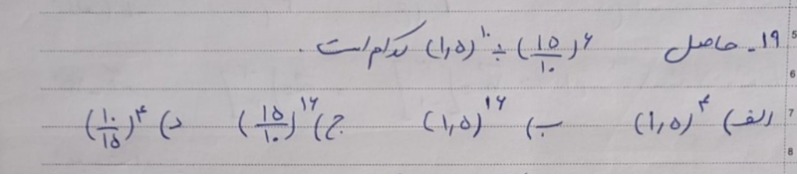 ۱۹ـ حاصل (۱۵/۱۰)^۶ ÷ (۱,۵)^۱۰ کدام است.
الف) (۱,۵)^۴ ب) (۱,۵)^۱۶ ج) (۱۵/۱۰)^۱۶ د) (۱۰/۱۵)^۴
5
6
7
8